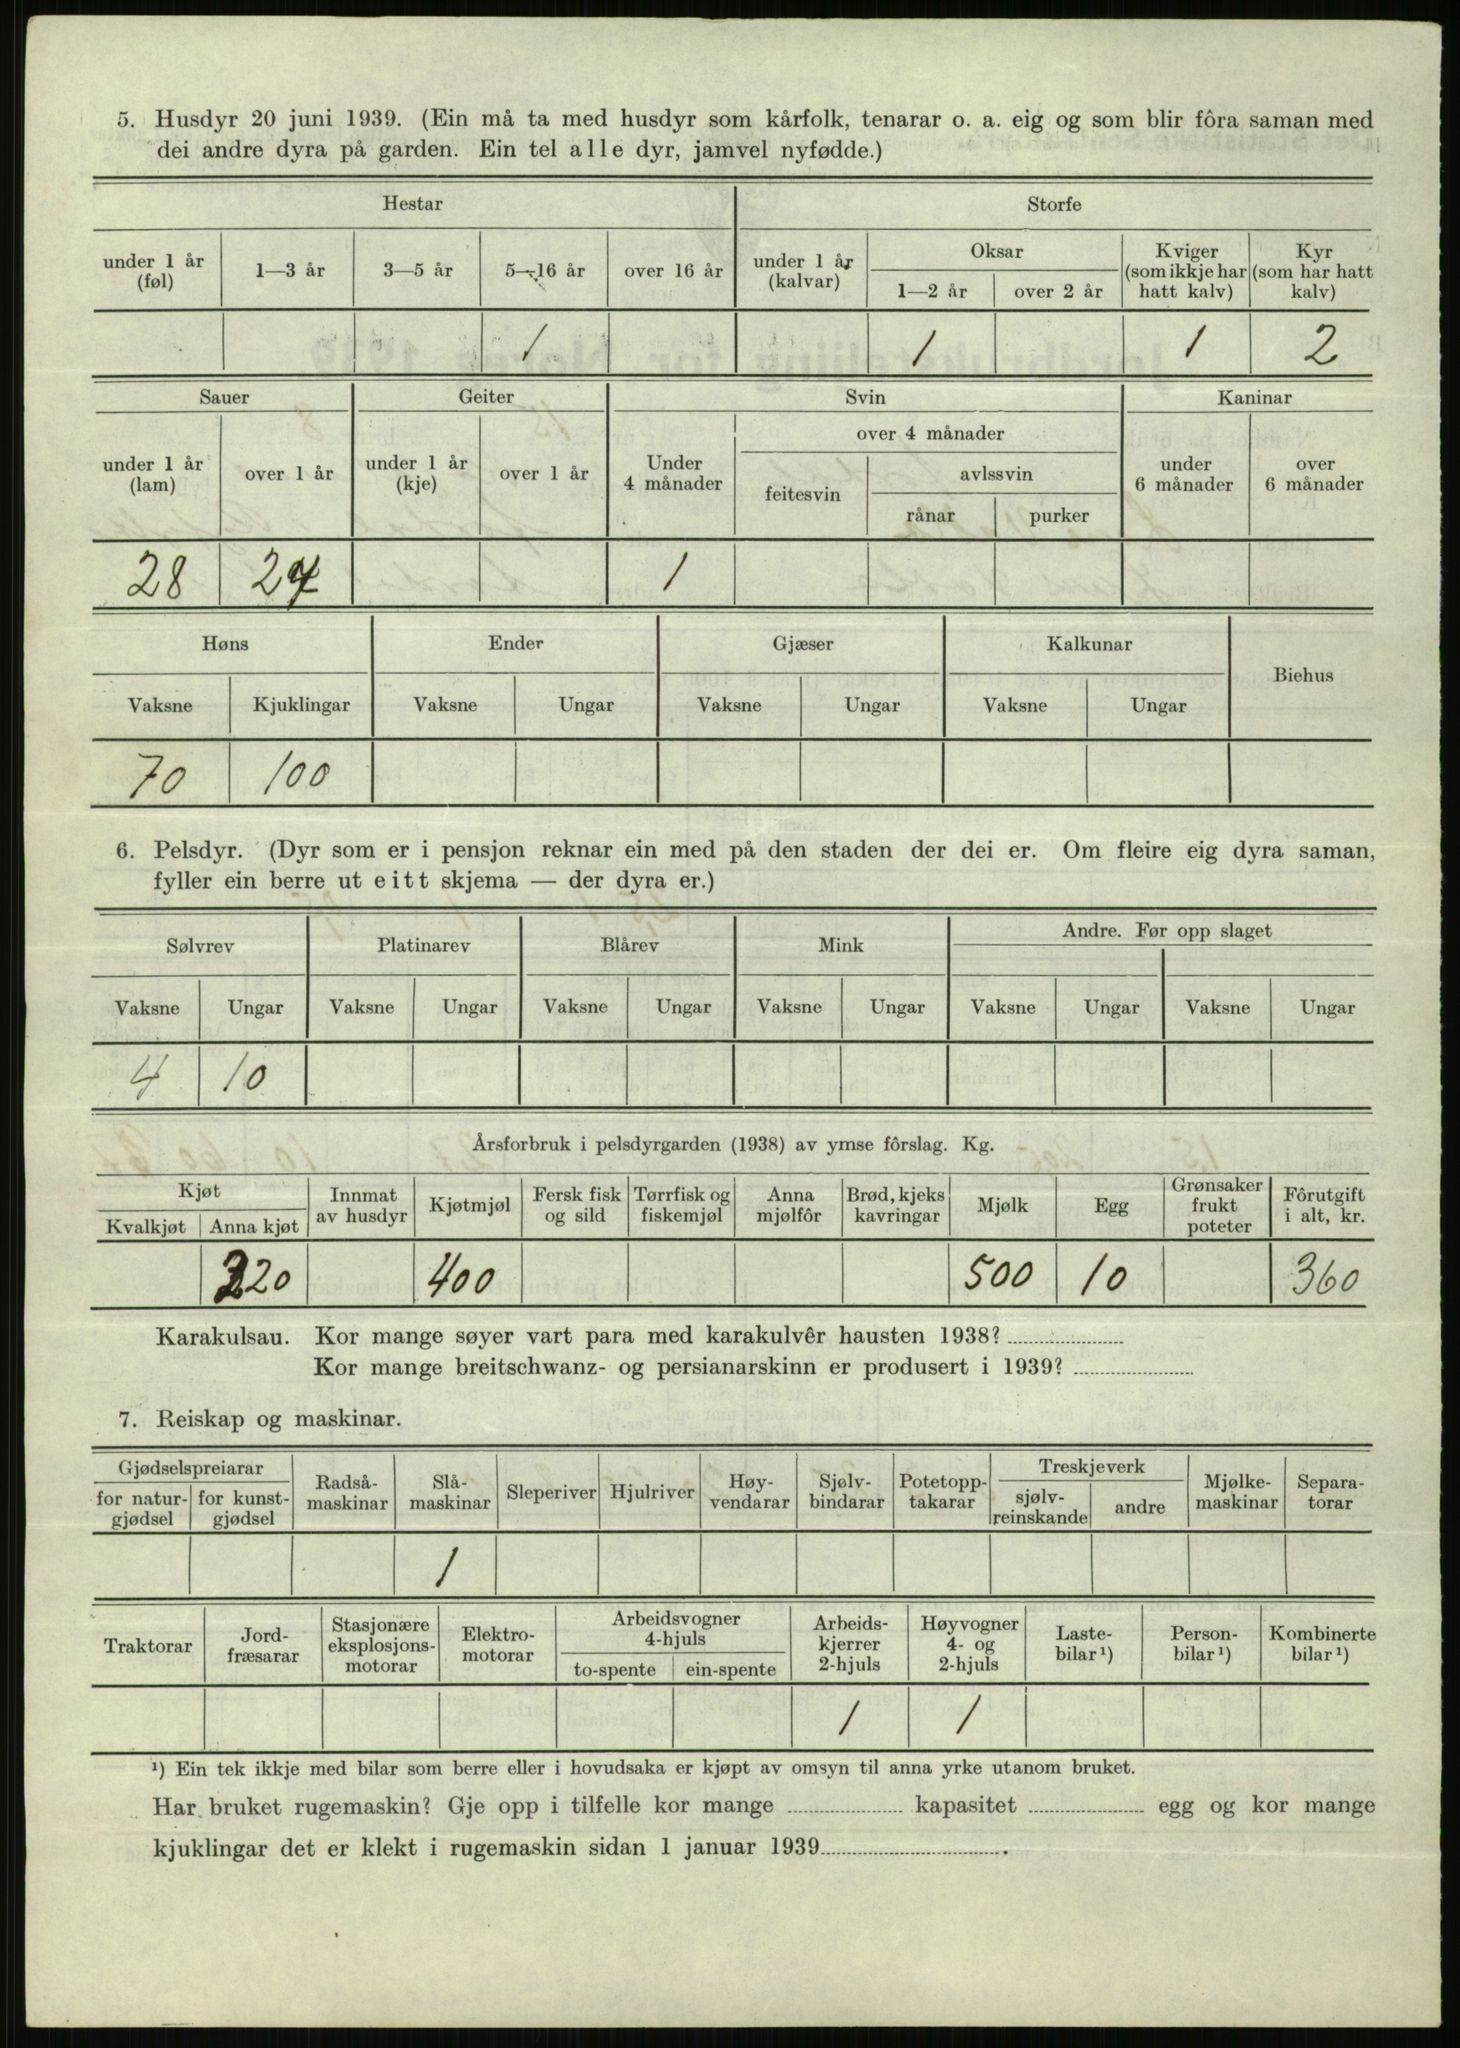 5. Husdyr 20 juni 1939. (Ein må ta med husdyr som kårfolk, tenarar o. a. eig og som blir fôra saman med
dei andre dyra på garden. Ein tel alle dyr, jamvel nyfødde.)
Hestar Storfe
under 1 år (føl) 1—3 år 3—5 år 5—16 år over 16 år under 1 år (kalvar) Oksar 1—2 år over 2 år Kviger (som ikkje har hatt kalv) Kyr (som har hatt kalv)
1 1 1 2
Sauer Geiter Svin Kaninar
over 4 månader
under 1 år (lam) over 1 år under 1 år (kje) over 1 år Under 4 månader feitesvin avlssvin rånar purker under 6 månader over 6 månader
28 1
Høns Ender Gjæser Kalkunar Biehus
Vaksne Kjuklingar Vaksne Ungar Vaksne Ungar Vaksne Ungar
70 100
6. Pelsdyr. (Dyr som er i pensjon reknar ein med på den staden der dei er. Om fleire eig dyra saman,
fyller ein berre ut eitt skjema — der dyra er.)
Sølvrev Platinarev Blårev Mink Andre. Før opp slaget
Vaksne Ungar Vaksne Ungar Vaksne Ungar Vaksne Ungar Vaksne Ungar Vaksne Ungar
4 10
Årsforbruk i pelsdyrgarden (1938) av ymse fôrslag. Kg.
Kjøt Kvalkjøt Anna kjøt Innmat av husdyr Kjøtmjøl Fersk fisk og sild Tørrfisk og fiskemjøl Anna mjølfôr Brød, kjeks kavringar Mjølk Egg Grønsaker frukt poteter Fôrutgift i alt, kr.
400 500 10 360
Karakulsau. Kor mange søyer vart para med karakulvêr hausten 1938?
Kor mange breitschwanz- og persianarskinn er produsert i 1939?
7. Reiskap og maskinar.
Gjødselspreiarar for natur-gjødsel for kunst-gjødsel Radså-maskinar Slå-maskinar Sleperiver Hjulriver Høy-vendarar Sjølv-bindarar Potetopp-takarar Treskjeverk sjølv-reinskande andre Mjølke-maskinar Separa-torar
1
Traktorar Jord-fræsarar Stasjonære eksplosjons-motorar Elektro-motorar Arbeidsvogner 4-hjuls to-spente ein-spente Arbeids-kjerrer 2-hjuls Høyvogner 4- og 2-hjuls Laste-bilar¹) Person-bilar¹) Kombinerte bilar¹)
1 1
¹) Ein tek ikkje med bilar som berre eller i hovudsaka er kjøpt av omsyn til anna yrke utanom bruket.
Har bruket rugemaskin? Gje opp i tilfelle kor mange kapasitet egg og kor mange
kjuklingar det er klekt i rugemaskin sidan 1 januar 1939 .